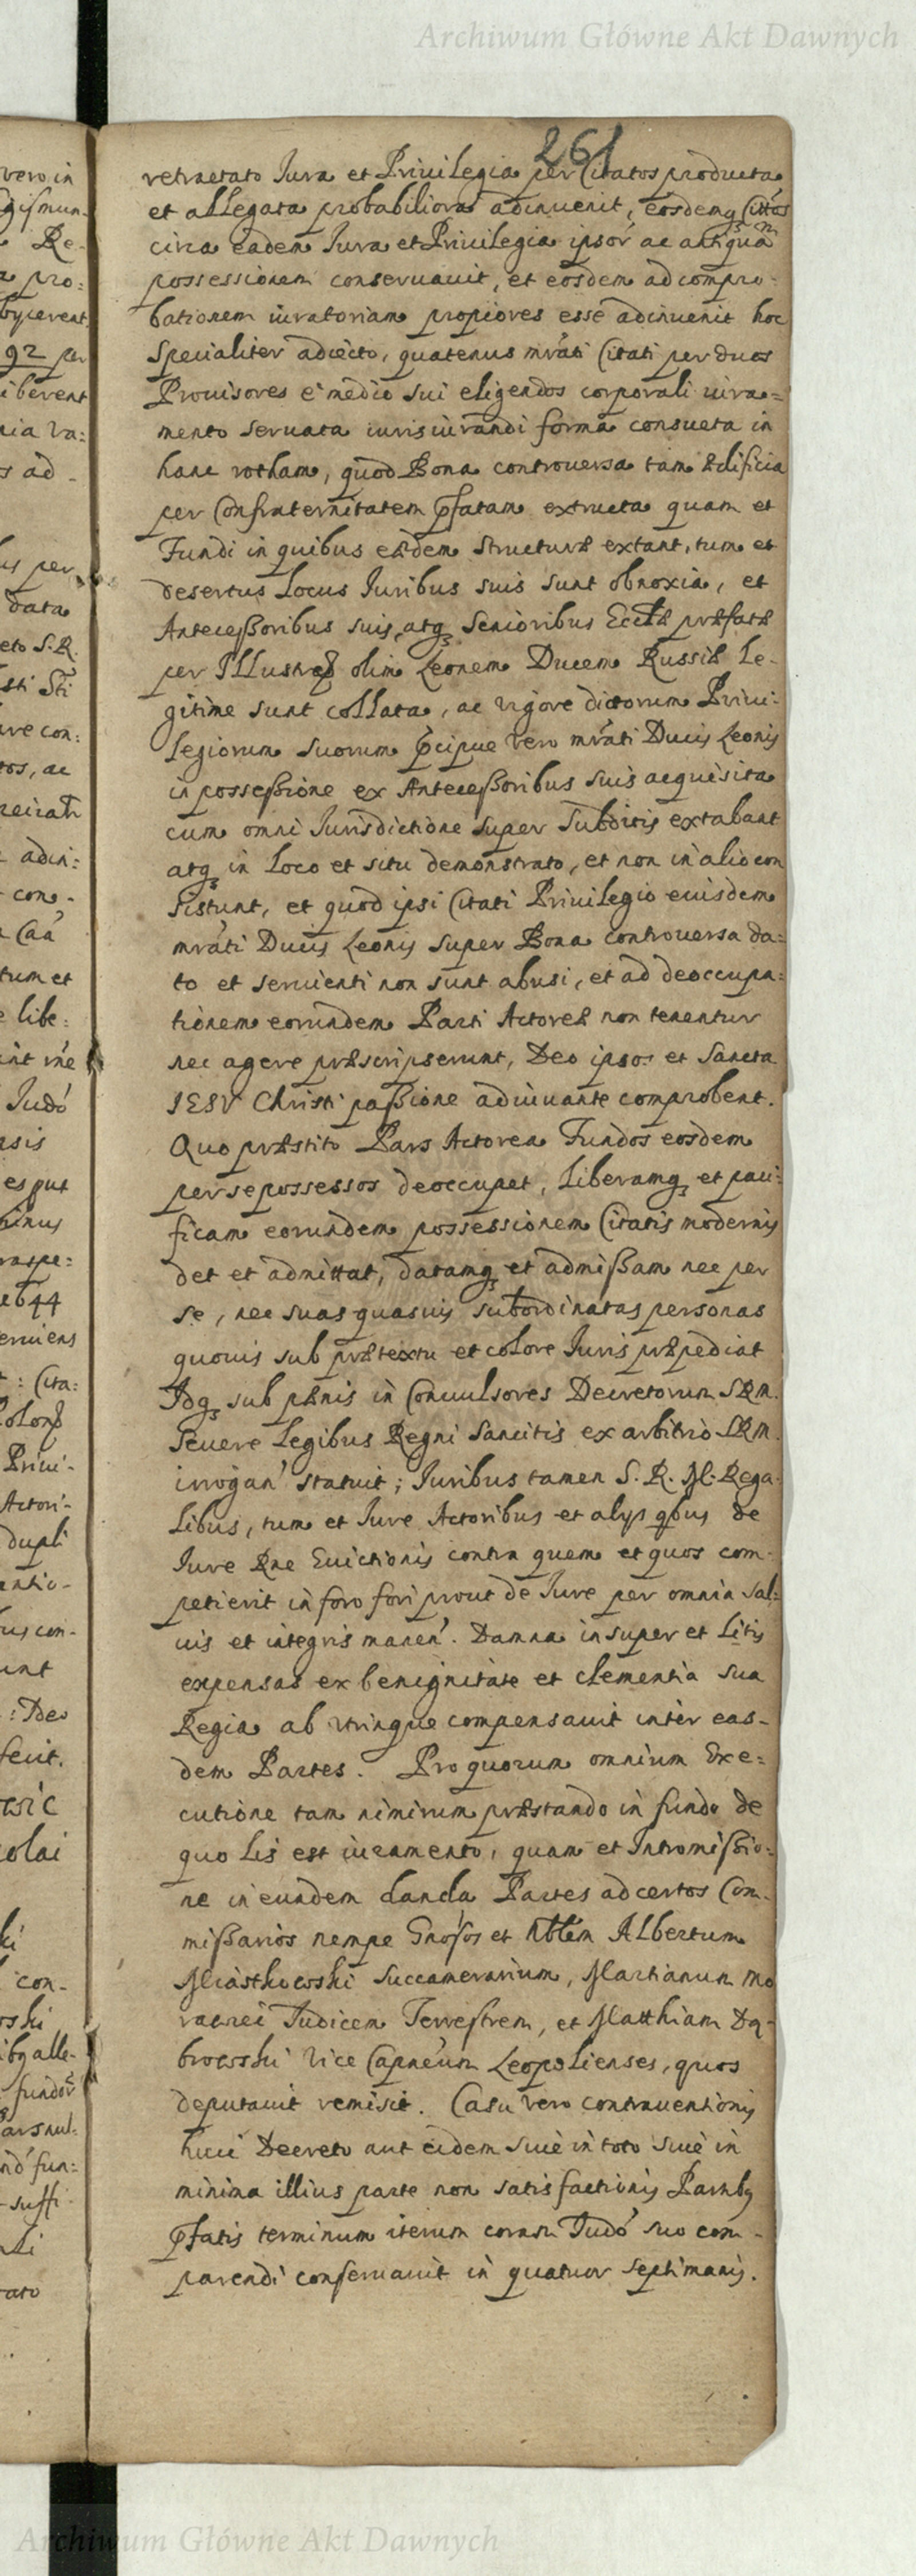 Archiwum Główne Akt Dawnych
261
retractato Jura et Priuilegia per Citatos producta
et allegata probabiliora adinuenit, eosdemq Cittos
circa eadem Jura et Priuilegia ipsor ac antiquam
possessionem conseruauit, et eosdem ad compro-
bationem iuratoriam propiores esse adinuenit hoc
specialiter adiecto, quatenus mrati Citati per duos
Prouisores e medio sui eligendos corporali iura-
mento seruata iurisiurandi forma consueta in
hanc rotham, quod Bona controuersa tam Ædificia
per Confraternitatem pfatam extructa quam et
Fundi in quibus eædem structuræ extant, tum et
desertus Locus Juribus suis sunt obnoxia, et
Antecessoribus suis atq Senioribus Eccliæ præfatæ
per Illustrem olim Leonem Ducem Russiæ le-
gitime sunt collata, ac vigore dictorum Priui-
legiorum suorum pcipue vero mrati Ducis Leonis
in possessione ex Antecessoribus suis acquisita
cum omni Jurisdictione super Subditis extabant
atq in Loco et situ demonstrato, et non in alio con
sistunt, et quod ipsi Citati Priuilegio eiusdem
mrati Ducis Leonis super Bona controuersa da-
to et seruienti non sunt abusi, et ad deoccupa-
tionem eorundem Parti Actoreæ non tenentur
nec agere præscripserunt, Deo ipsos et Sancta
IESV Christi passione adiuuante comprobent.
Quo præstito Pars Actorea Fundos eosdem
per se possessos deoccupet, liberamq et paci-
ficam eorundem possessionem Citatis modernis
det et admittat, datamq et admissam nec per
se, nec suas quasuis subordinatas personas
quouis sub prætextu et colore Juris præpediat
Idq sub pænis in Conuulsores Decretorum SRM.
seuere legibus Regni sancitis ex arbitrio SRM.
irrogan statuit; Juribus tamen S. R. M. Rega-
libus, tum et Jure Actoribus et alys qbus de
Jure Rne Euictionis contra quem et quos com-
petierit in foro fori prout de Jure per omnia sal-
uis et integris manen. Damna insuper et Litis
expensas ex benignitate et clementia sua
Regia ab vtrinque compensauit inter eas-
dem Partes. Pro quorum omnium Exe-
cutione tam nimirum præstando in fundo de
quo Lis est iuramento, quam et Intromissio-
ne in eundem danda Partes ad certos Com-
missarios nempe Gnosos et Nblem Albertum
Miasthowski Succamerarium, Martianum
Judicem Terrestrem, et Matthiam Dą-
browski Vice Capneum Leopolienses, quos
deputauit remisit. Casu vero contrauentionis
huic Decreto aut eidem siue in toto siue in
minima illius parte non satisfactionis Partibq
pfatis terminum iterum coram Judo suo com-
parendi conseruauit in quatuor septimanis.
Archiwum Główne Akt Dawnych